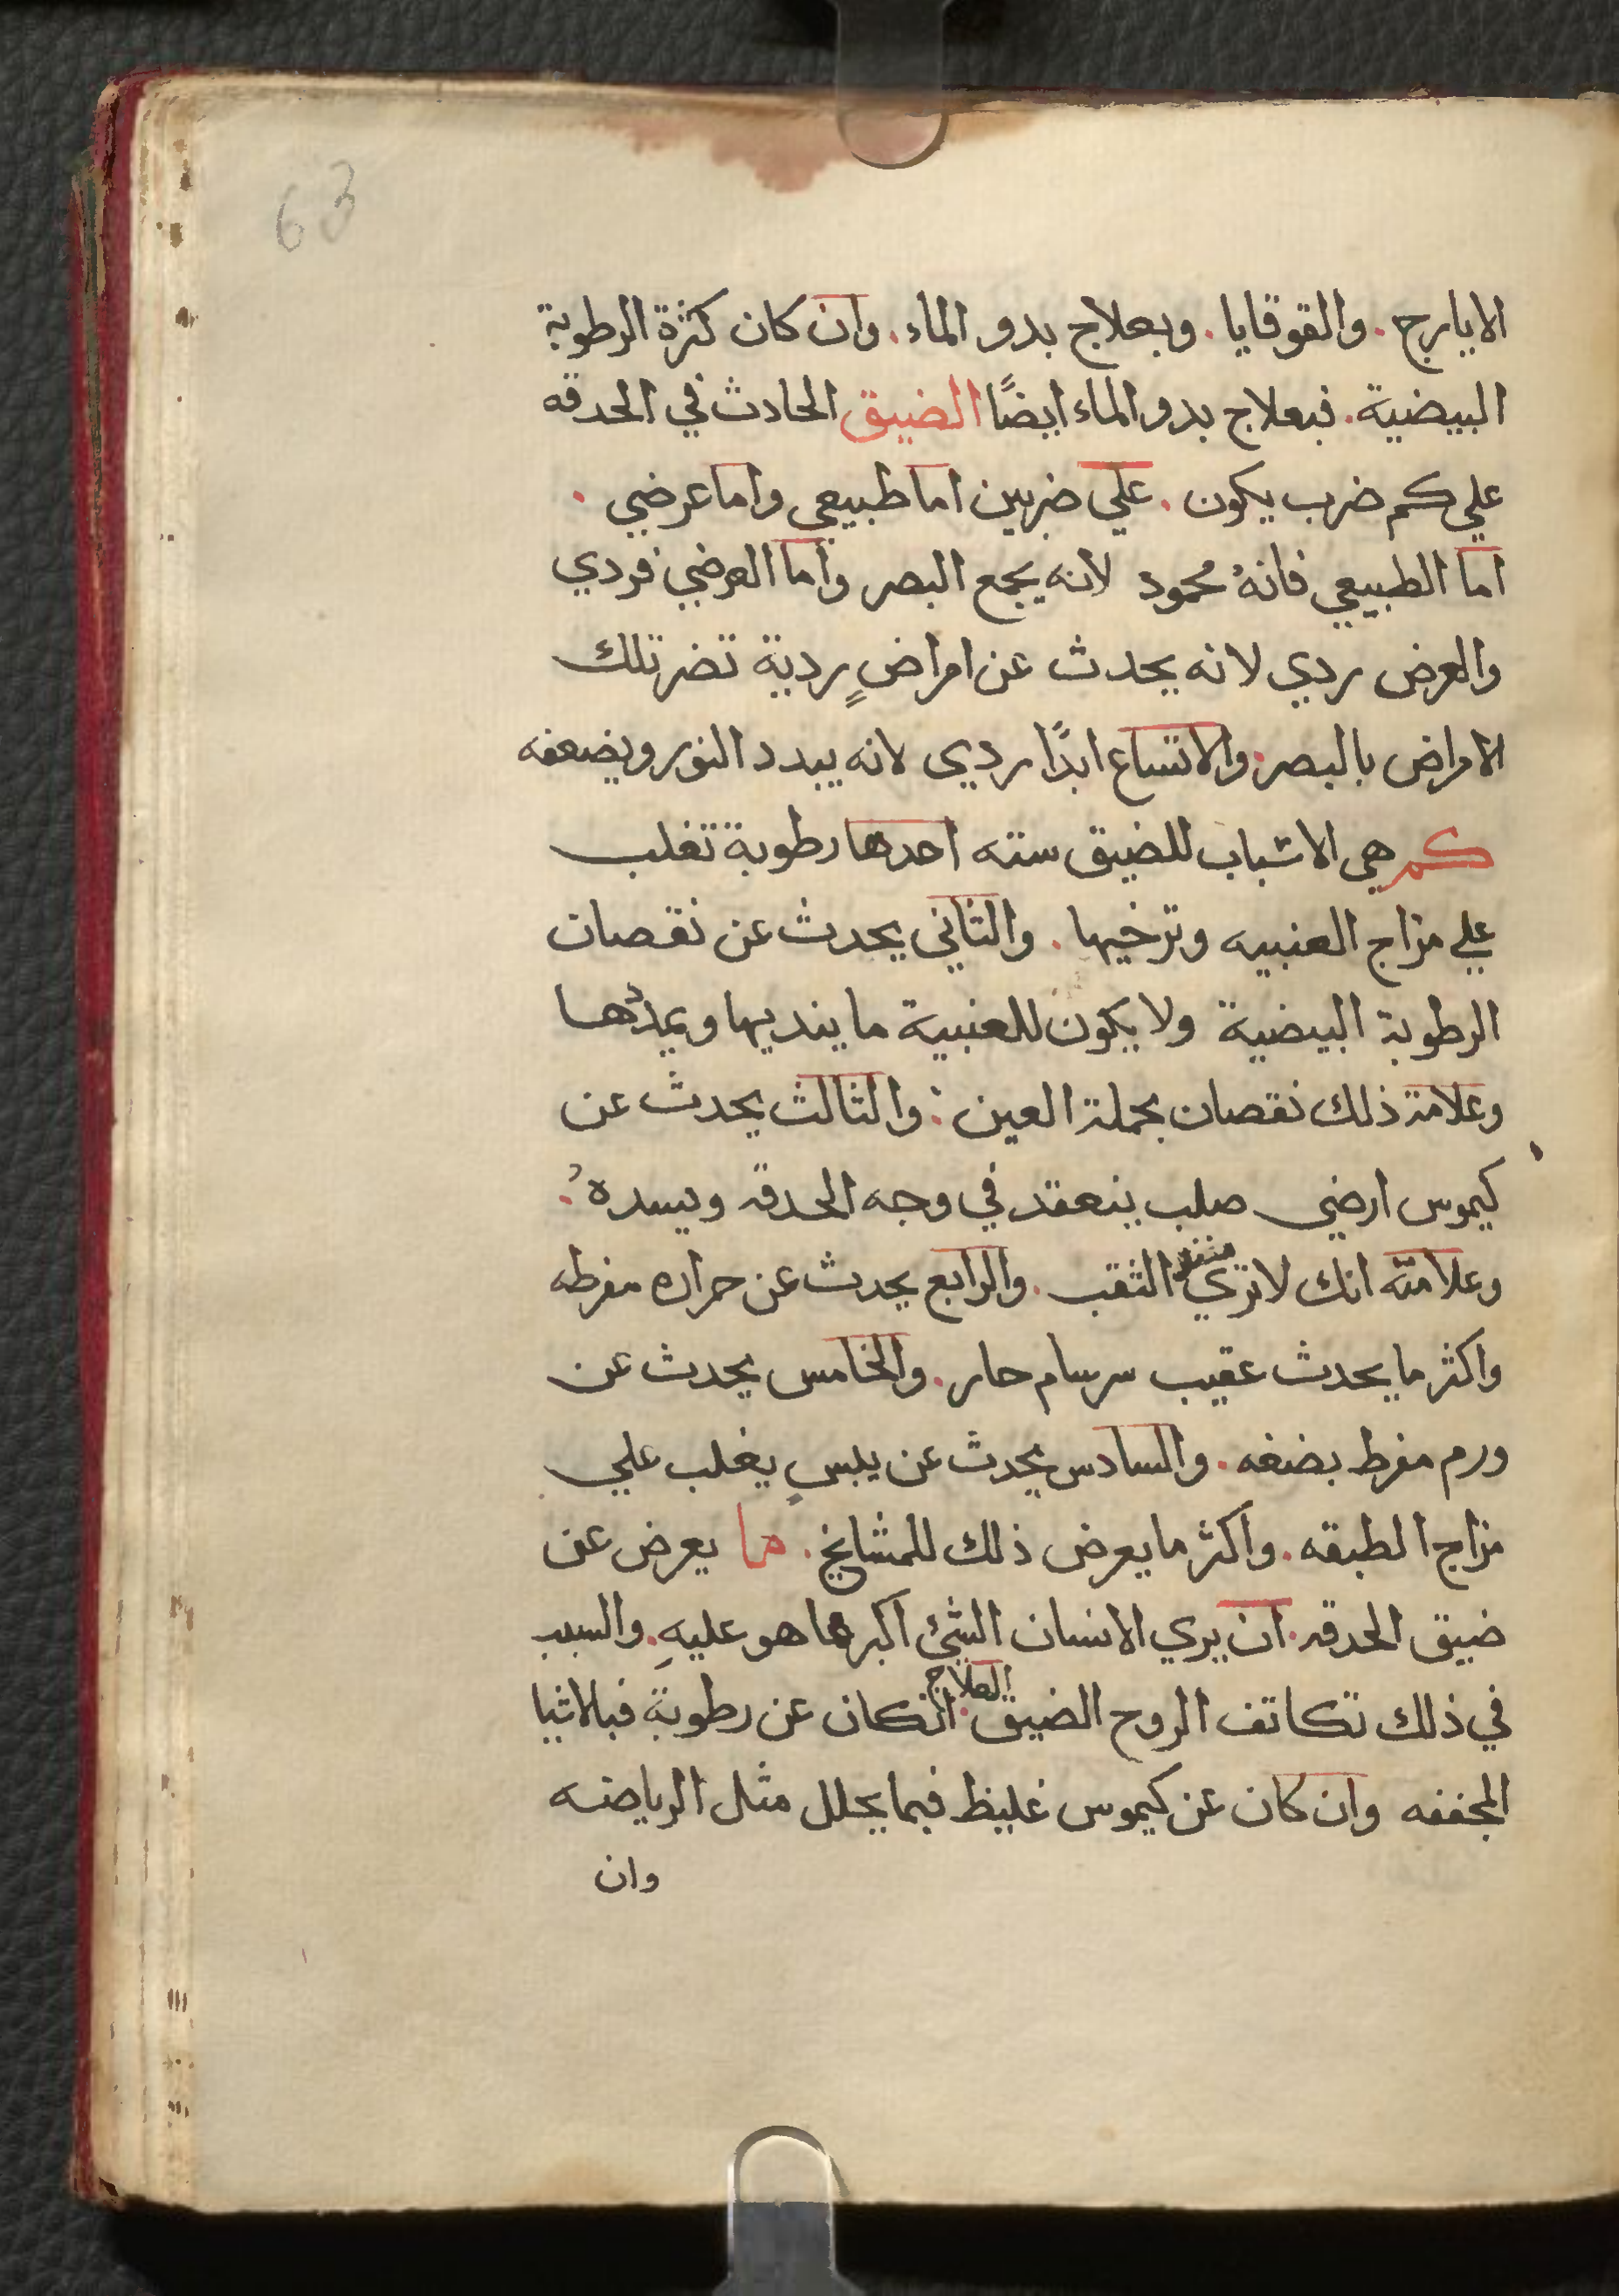 63
الايارج . والقوقايا . وبعلاج بدو الماء . وان كان كثرة الرطوبة
البيضية . فبعلاج بدو الماء ايضًا الضيق الحادث في الحدقه
علي كم ضرب يكون . علي ضربين اما طبيعي واما عرضي .
اما الطبيعي فانهُ محمود لانه يجمع البصر واما العرضي فردي
والعرض ردي لانه يحدث عن امراضٍ ردية تضر تلك
الامراض بالبصر . والاتساع ابدًا ردي لانه يبدد النور ويضعفه
كم هي الاشباب للضيق سته احدها رطوبة تغلب
علي مزاج العنبيه وترخيها . والثاني يحدث عن نقصان
الرطوبة البيضية ولا يكون للعنبية ما ينديها ويمدّها
وعلامة ذلك نقصان بجملة العين : والثالث يحدث عن
كيموس ارضي صلب ينعقد في وجه الحدقه ويسدهُ .
وعلامته انك لا تري الثقب . والرابع يحدث عن حراره مفرطه
واكثر ما يحدث عقيب سرسام حار . والخامس يحدث عن
ورم مفرط بضغه . والسادس يحدث عن يبسٍ يغلب علي
مزاج الطبقه . واكثر ما يعرض ذلك للمشايخ . ما يعرض عن
ضيق الحدقه . ان يري الانسان الشئ اكبر مما هو عليهِ . والسبب
العلاج
في ذلك تكاتف الروح الضيق . انكان عن رطوبة فبالاشيا
المجففه وان كان عن كيموس غليظ فبما يحلل مثل الرياضه
وان